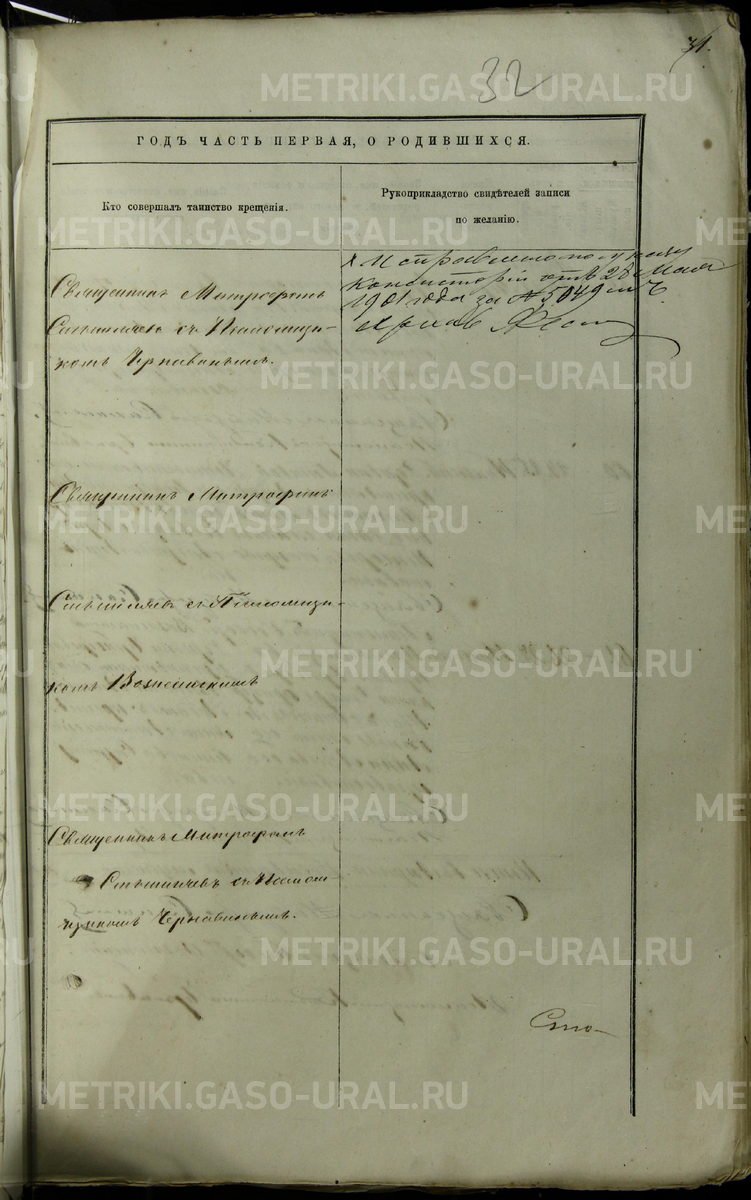 32
31.
ГОДЪ ЧАСТЬ ПЕРВАЯ, О РОДИВШИХСЯ.
Кто совершалъ таинство крещенія.
Рукоприкладство свидѣтелей записи
по желанію.
Священникъ Митрофанъ
съ Псаломщи-
комъ Чернавинымъ.
консисторіи отъ 28 Мая
1901 года за № 5049
Священникъ Митрофанъ
съ Псаломщи-
комъ Вознесенскимъ
Священникъ Митрофанъ
съ Псалом
щикомъ Чернавинымъ.
METRIKI.GASO-URAL.RU